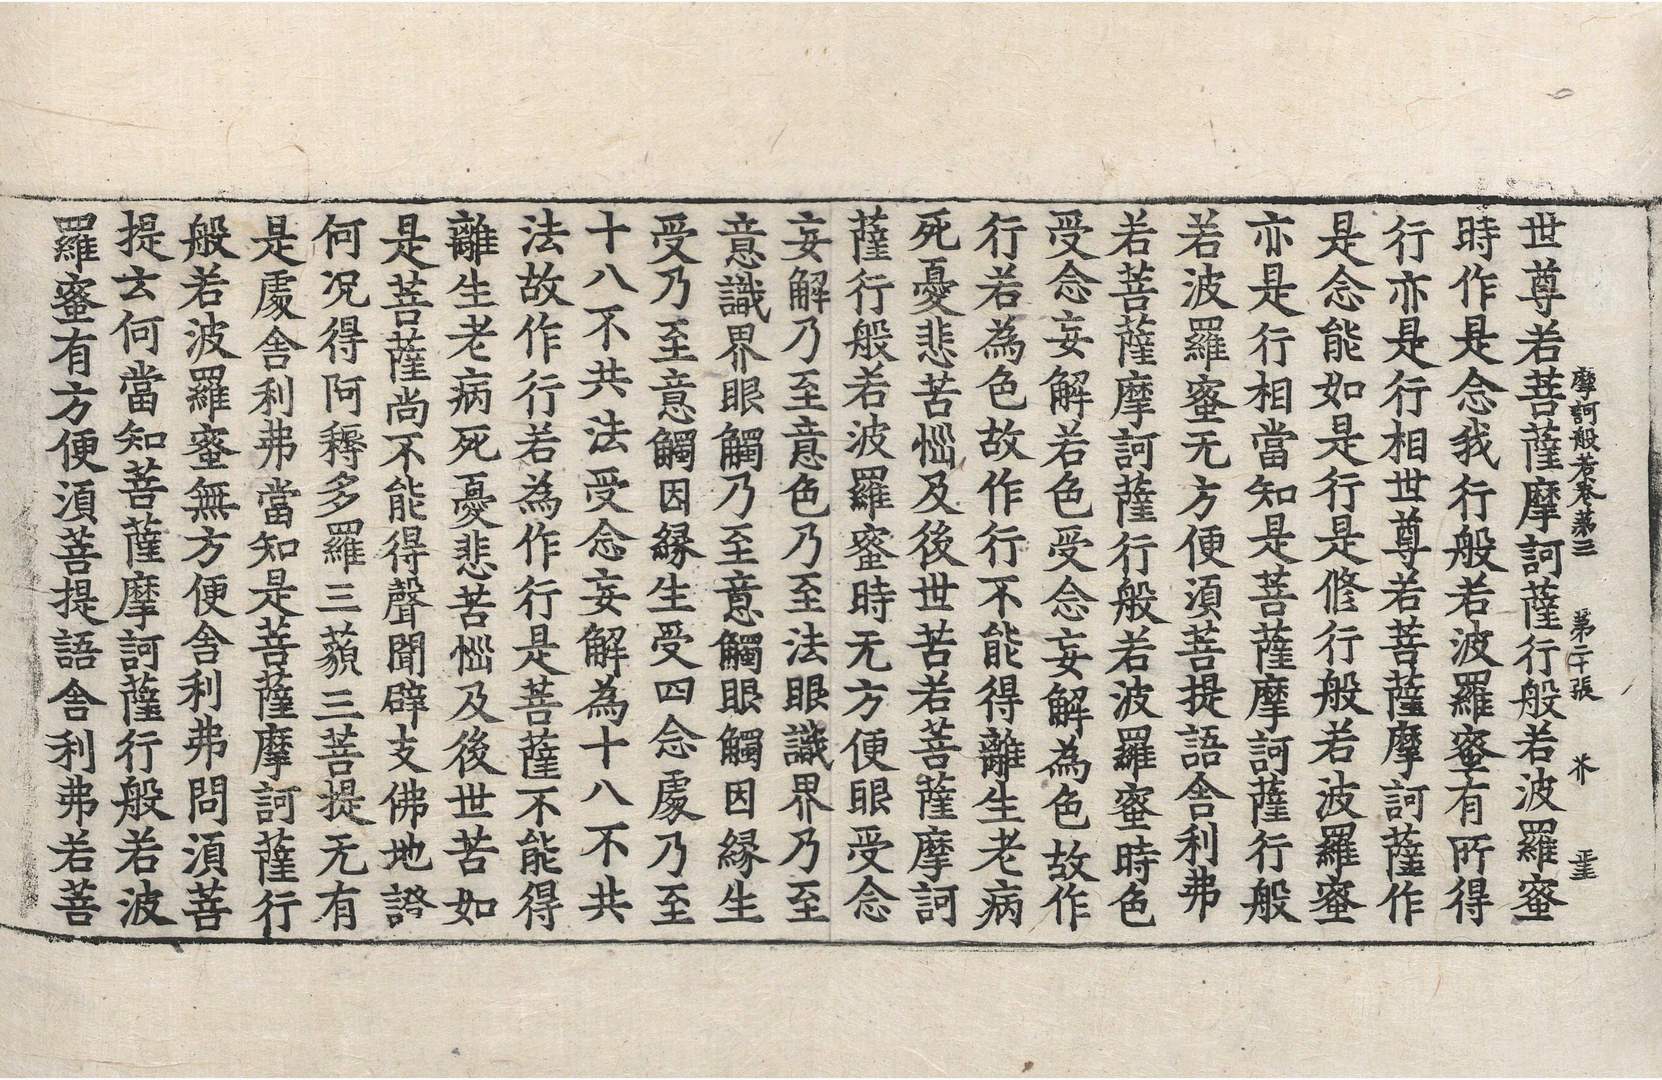 摩訶般若卷苐三 第二十張 芥
世尊若菩薩摩訶薩行般若波羅蜜
時作是念我行般若波羅蜜有所得
行亦是行相世尊若菩薩摩訶薩作
是念能如是行是修行般若波羅蜜
亦是行相當知是菩薩摩訶薩行般
若波羅蜜无方便湏菩提語舍利弗
若菩薩摩訶薩行般若波羅蜜時色
受念妄解若色受念妄解為色故作
行若為色故作行不能得離生老病
死憂悲苦惱及後世苦若菩薩摩訶
薩行般若波羅蜜時无方便眼受念
妄解乃至意色乃至法眼識界乃至
意識界眼觸乃至意觸眼觸因緣生
受乃至意觸因緣生受四念處乃至
十八不共法受念妄解為十八不共
法故作行若為作行是菩薩不能得
離生老病死憂悲苦惱及後世苦如
是菩薩尚不能得聲聞辟支佛地證
何况得阿耨多羅三藐三菩提无有
是處舍利弗當知是菩薩摩訶薩行
般若波羅蜜無方便舍利弗問湏菩
提云何當知菩薩摩訶薩行般若波
羅蜜有方便湏菩提語舍利弗若菩